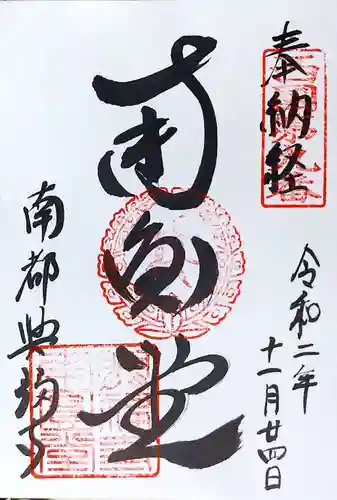 奉納経
令和二年
十一月廿四日
南円堂
南都興福寺